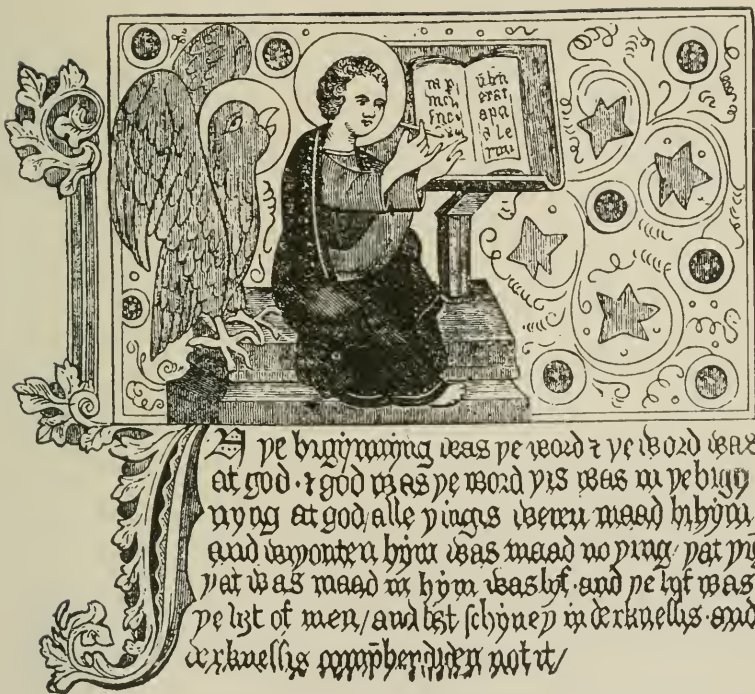 erat
IN þe bigynnyng was þe word ⁊ þe word was
at god · ⁊ god was þe word þis was in þe bigyn
nyng at god / alle þingis weren maad bi hym
and wiþouten hym was maad no þing / þat þig
þat was maad in hym was lyf · and þe lyf was
þe liȝt of men / and liȝt schyneþ in derknessis · and
derknessis comp̄hendiden not it /